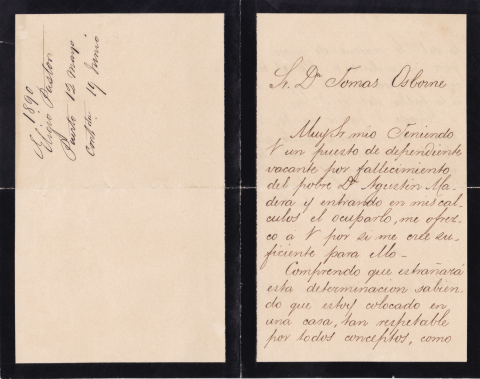 1890
Eligio Pastor
Puerto 12 Mayo
Contda 19 Junio
Sr. Dn Tomas Osborne
Muy Sr mio Teniendo
V un puesto de dependiente
vacante por fallecimiento
del pobre Dn Agustin Ma-
dera y entrando en mis cal-
culos el ocuparlo, me ofrez-
co á V por si me cree su-
ficiente para ello-
Comprendo que estrañará
esta determinacion sabien-
do que estoy colocado en
una casa, tan respetable
por todos conceptos, como